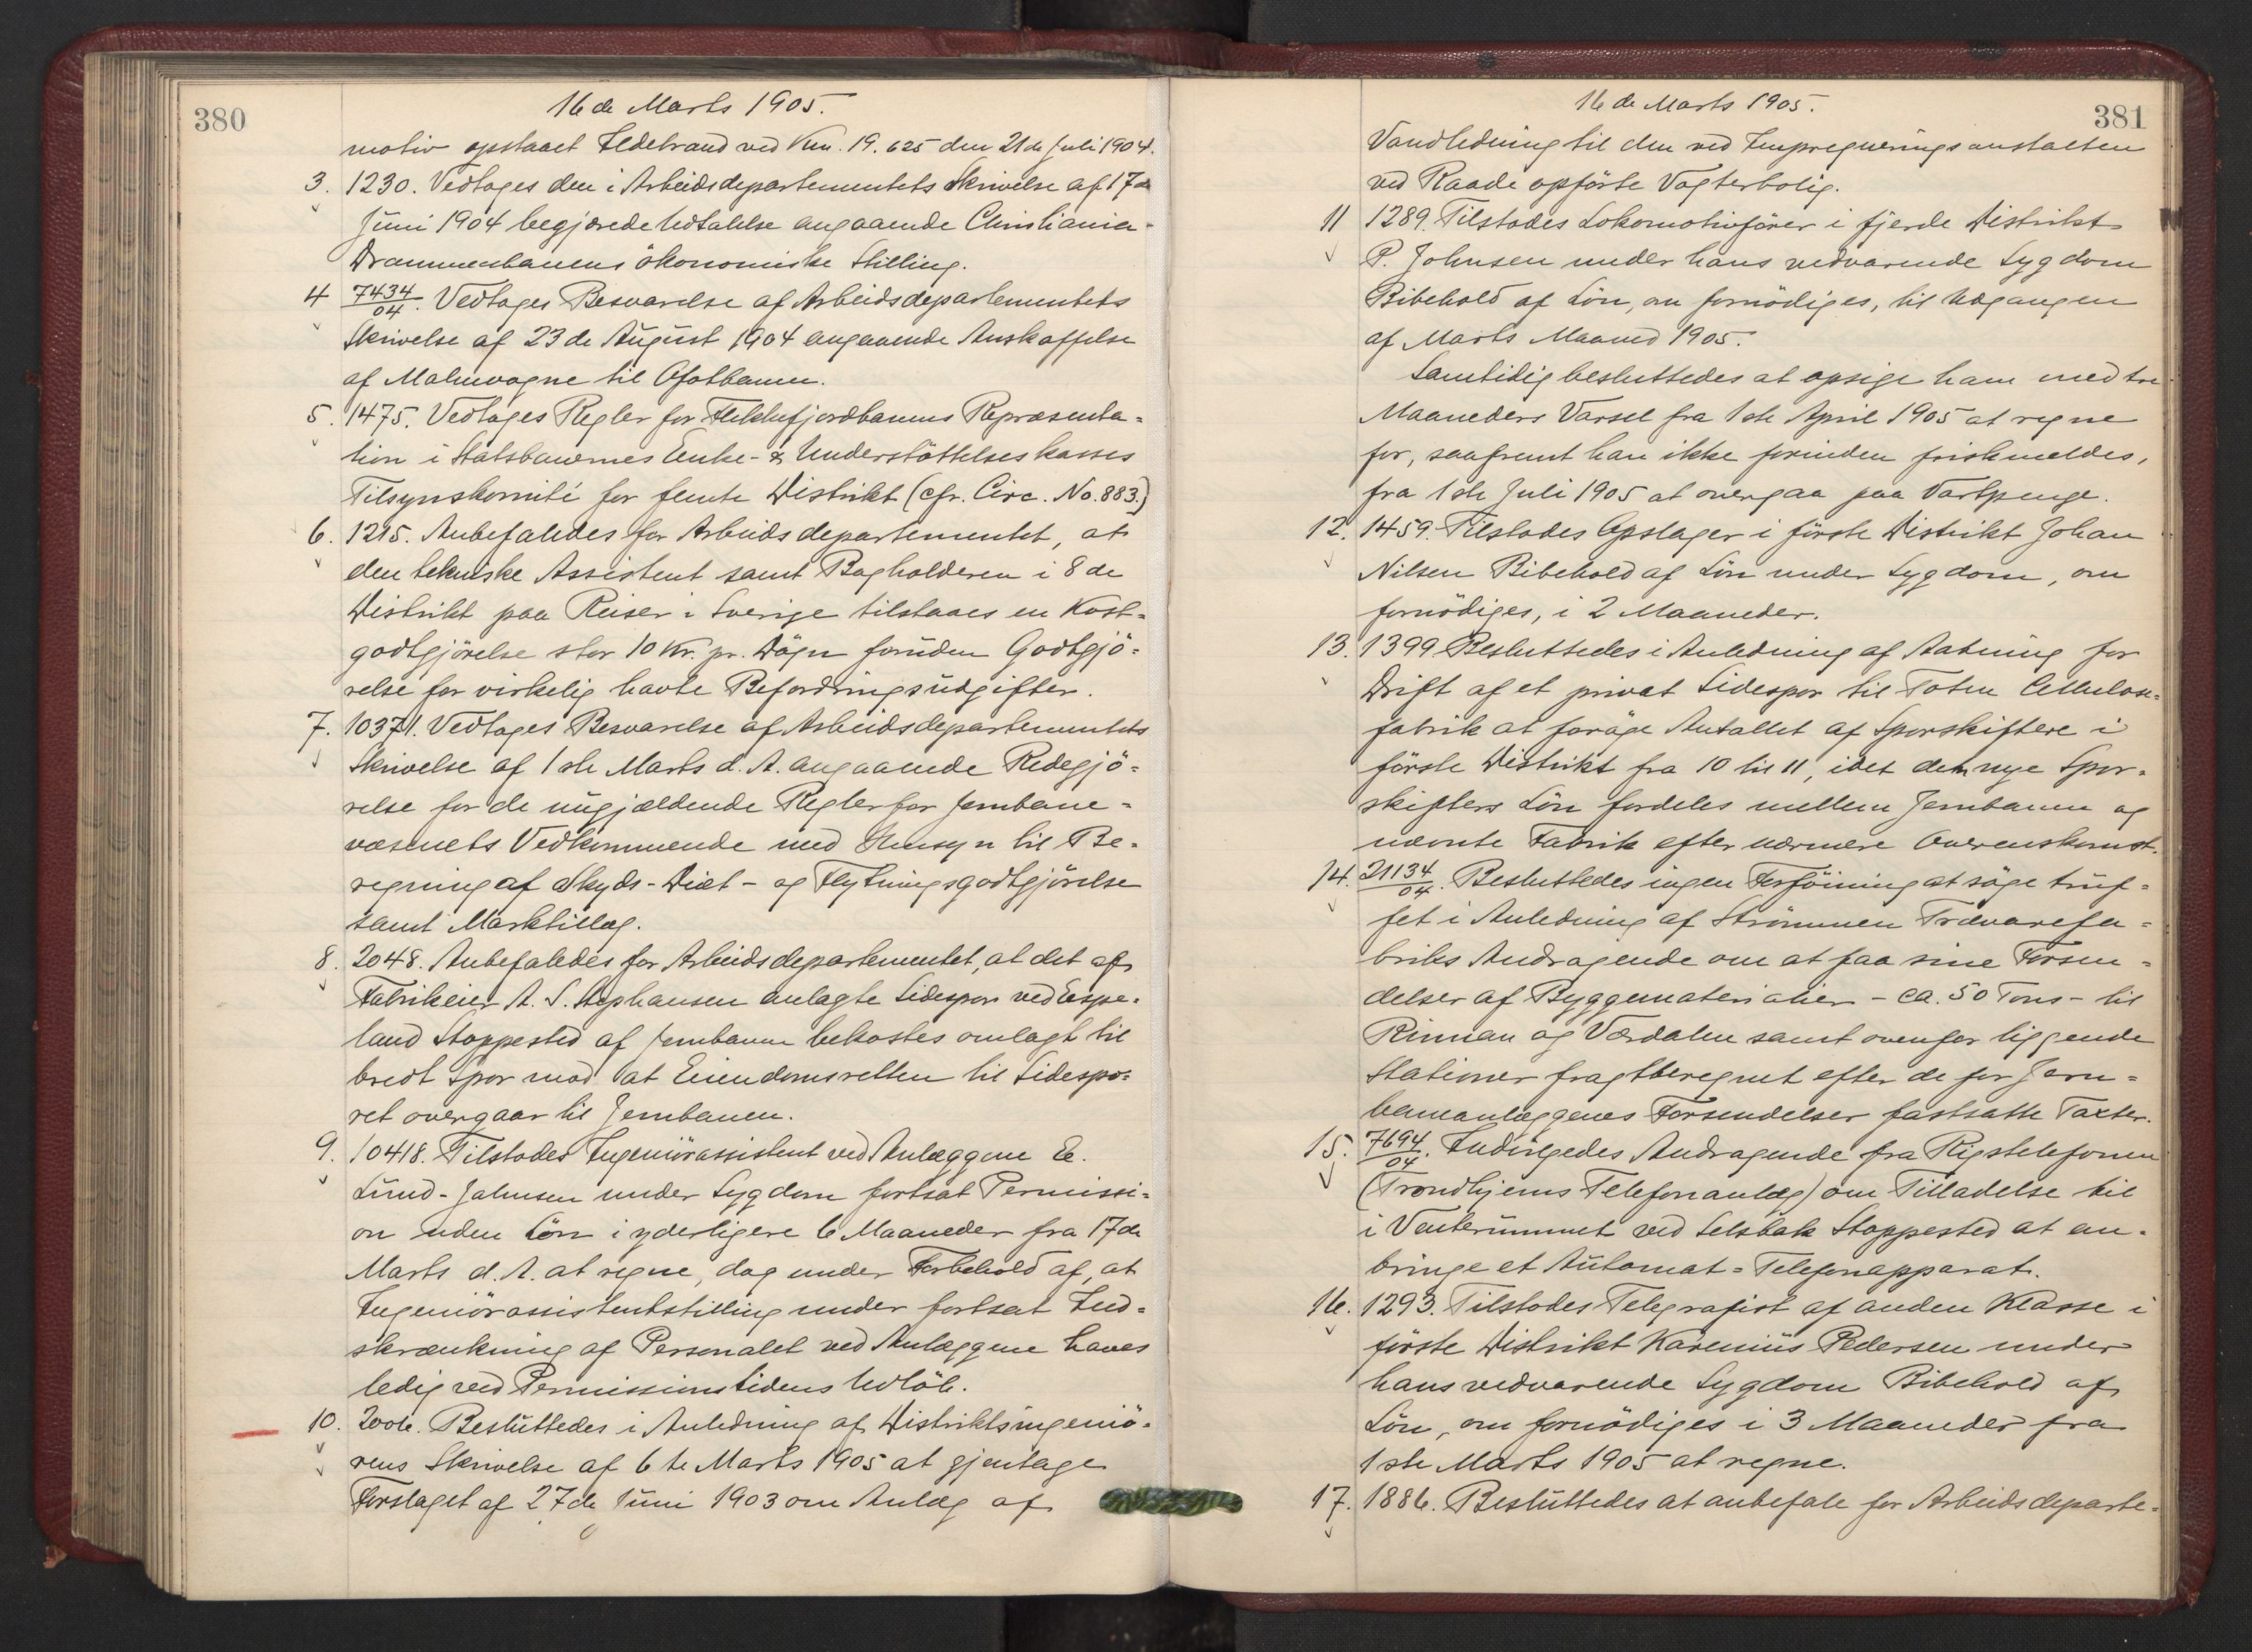 380
16de Marts 1905.
motiv opstaaet Ildebrand ved Km. 19.625 den 21de Juli 1904.
3. 1230. Vedtages den i Arbeidsdepartementets Skrivelse af 17de
Juni 1904 begjærede Udtalelse angaaende Christiania-
Drammenbanens ökonomiske Stilling.
4 7434/04. Vedtages Besvarelse af Arbeidsdepartementets
Skrivelse af 23de August 1904 angaaende Anskaffelse
af Malmvogne til Ofotbanen.
5. 1475. Vedtages Regler for Flekkefjordbanens Repræsenta=
tion i Statsbanernes Enke- & Understöttelseskasses
Tilsynskomité for femte Distrikt (cfr. Circ. No. 883.)
6. 1215. Anbefaledes for Arbeidsdepartementet, at
den tekniske Assistent samt Bogholderen i 8de
Distrikt paa Reiser i Sverige tilstaaes en Kost=
godtgjörelse stor 10 Kr. pr. Dögn foruden Godtgjö=
relse for virkelig havte Befordringsudgifter.
7. 10371. Vedtages Besvarelse af Arbeidsdepartementets
Skrivelse af 1ste Marts d. A. angaaende Redegjö=
relse for de nugjældende Regler for Jernbane=
væsenets Vedkommende med Hensyn til Be=
regning af Skyds- Diæt- og Flytningsgodtgjörelse
samt Marktillæg.
8. 2048. Anbefaledes for Arbeidsdepartementet, at det af
Fabrikeier A. S. Stephansen anlagte Sidespor ved Espe=
land Stoppested af Jernbanen bekostes omlagt til
bredt Spor mod at Eiendomsretten til Sidespo=
ret overgaar til Jernbanen.
9. 10418. Tilstodes Ingeniörassistent ved Anlæggene E.
Lund-Johnsen under Sygdom fortsat Permissi=
on uden Lön i yderligere 6 Maaneder fra 17de
Marts d. A. at regne, dog under Forbehold af, at
Ingeniörassistentstilling under fortsat Ind=
skrænkning af Personalet ved Anlæggene haves
ledig ved Permissionstidens Udlöb.
10. 2006. Besluttedes i Anledning af Distriktsingeniö=
rens Skrivelse af 6te Marts 1905 at gjentage
Forslaget af 27de Juni 1903 om Anlæg af
381
16de Marts 1905.
Vandledning til den ved Impregneringsanstalten
ved Raade opförte Vogterbolig.
11 1289. Tilstodes Lokomotivförer i fjerde Distrikt
P. Johnsen under hans vedvarende Sygdom
Bibehold af Lön, om fornödiges, til Udgangen
af Marts Maaned 1905.
Samtidig besluttedes at opsige ham med tre
Maaneders Varsel fra 1ste April 1905 at regne
for, saafremt han ikke forinden friskmeldes,
fra 1ste Juli 1905 at overgaa paa Vartpenge.
12. 1459. Tilstodes Opslager i förste Distrikt Johan
Nilsen Bibehold af Lön under Sygdom, om
fornödiges, i 2 Maaneder.
13. 1399 Besluttedes i Anledning af Aabning for
Drift af et privat Sidespor til Toten Cellulose=
fabrik at foröge Antallet af Sporskiftere i
förste Distrikt fra 10 til 11, idet den nye Spor=
skifters Lön fordeles mellem Jernbanen og
nævnte Fabrik efter nærmere Overenskomst.
14. 21134/04. Besluttedes ingen Forföining at söge truf=
fet i Anledning af Strömmen Trævarefa=
briks Andragende om at faa sine Forsen=
delser af Byggematerialier - ca. 50 Tons - til
Rinnan og Værdalen samt ovenfor liggende
Stationer fragtberegnet efter de for Jern=
baneanlæggenes Forsendelser fastsatte Taxter.
15. 7694/04. Indvilgedes Andragende fra Rigstelefonen
(Trondhjems Telefonanlæg) om Tilladelse til
i Venterummet ved Selsbak Stoppested at an=
bringe et Automat=Telefonapparat.
16. 1293. Tilstodes Telegrafist af anden Klasse i
förste Distrikt Karenius Pedersen under
hans vedvarende Sygdom Bibehold af
Lön, om fornödiges i 3 Maaneder fra
1ste Marts 1905 at regne.
17. 1886. Besluttedes at anbefale for Arbeidsdeparte=